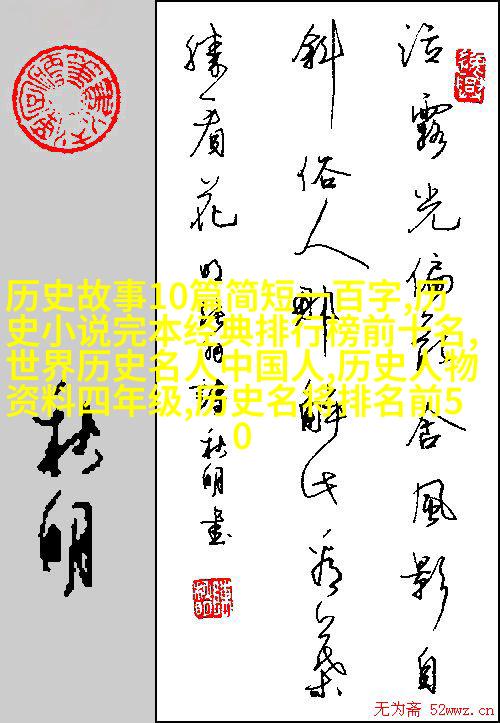 沾露光偏乱含风影自
斜俗人那解此看叶
胜看花
秋明书
秋明
历史故事10篇简短一百字,历
史小说完本经典排行榜前十名,
世界历史名人中国人,历史人物
资料四年级,历史名将排名前5
0
无为斋 52wwz.cn